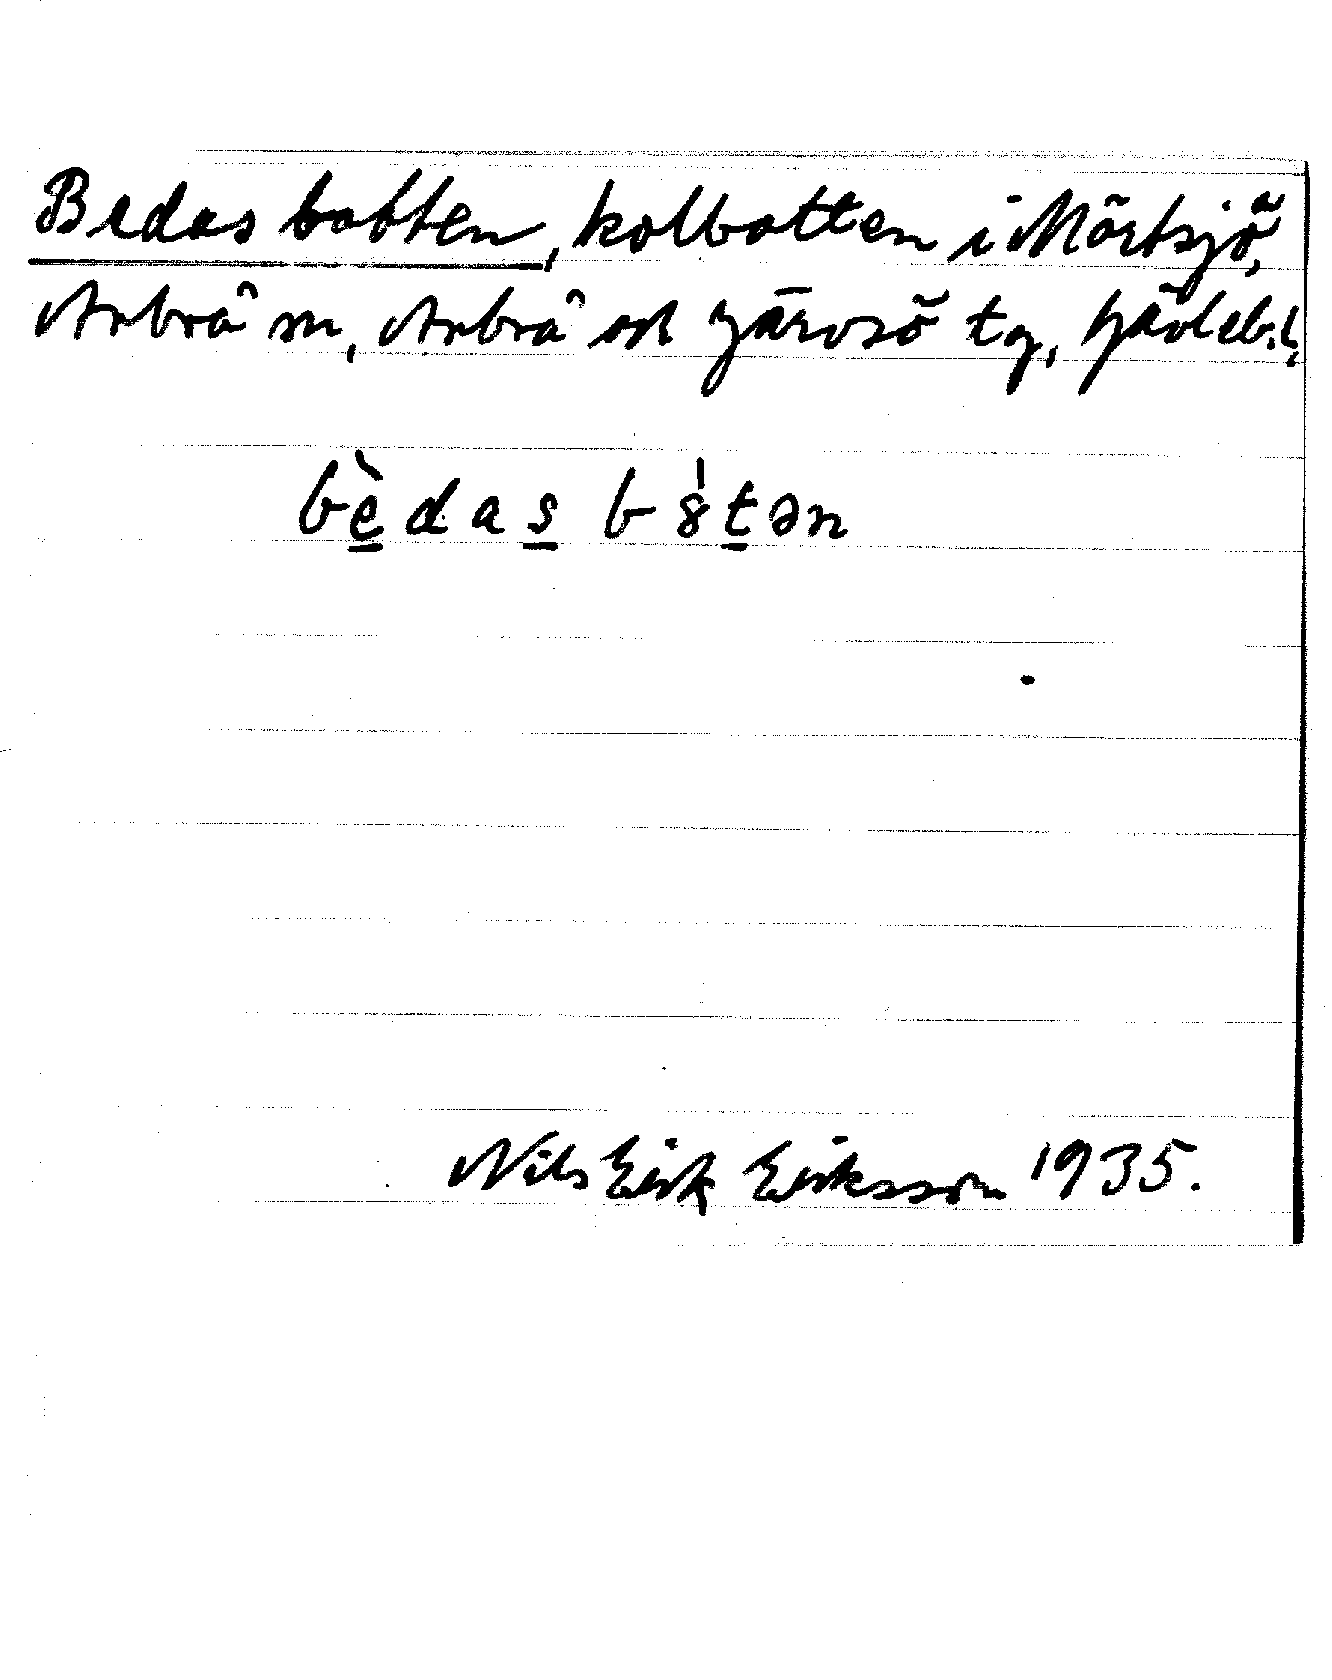 Bedas botten, kolbotten i Mörtsjö,
Arbrå sn, Arbrå och Järvsö tg, Gävleb. l.
bèdas b8́tən
Nils Erik Eriksson 1935.